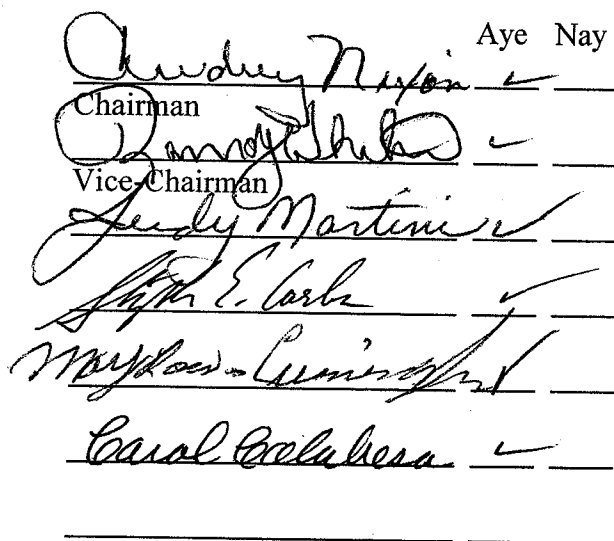 Aye Nay
Audrey Nixon ✓
Chairman
✓
Vice-Chairman
Judy Martini ✓
E. Carlson ✓
Mary Lou ✓
Carol Calabresa ✓